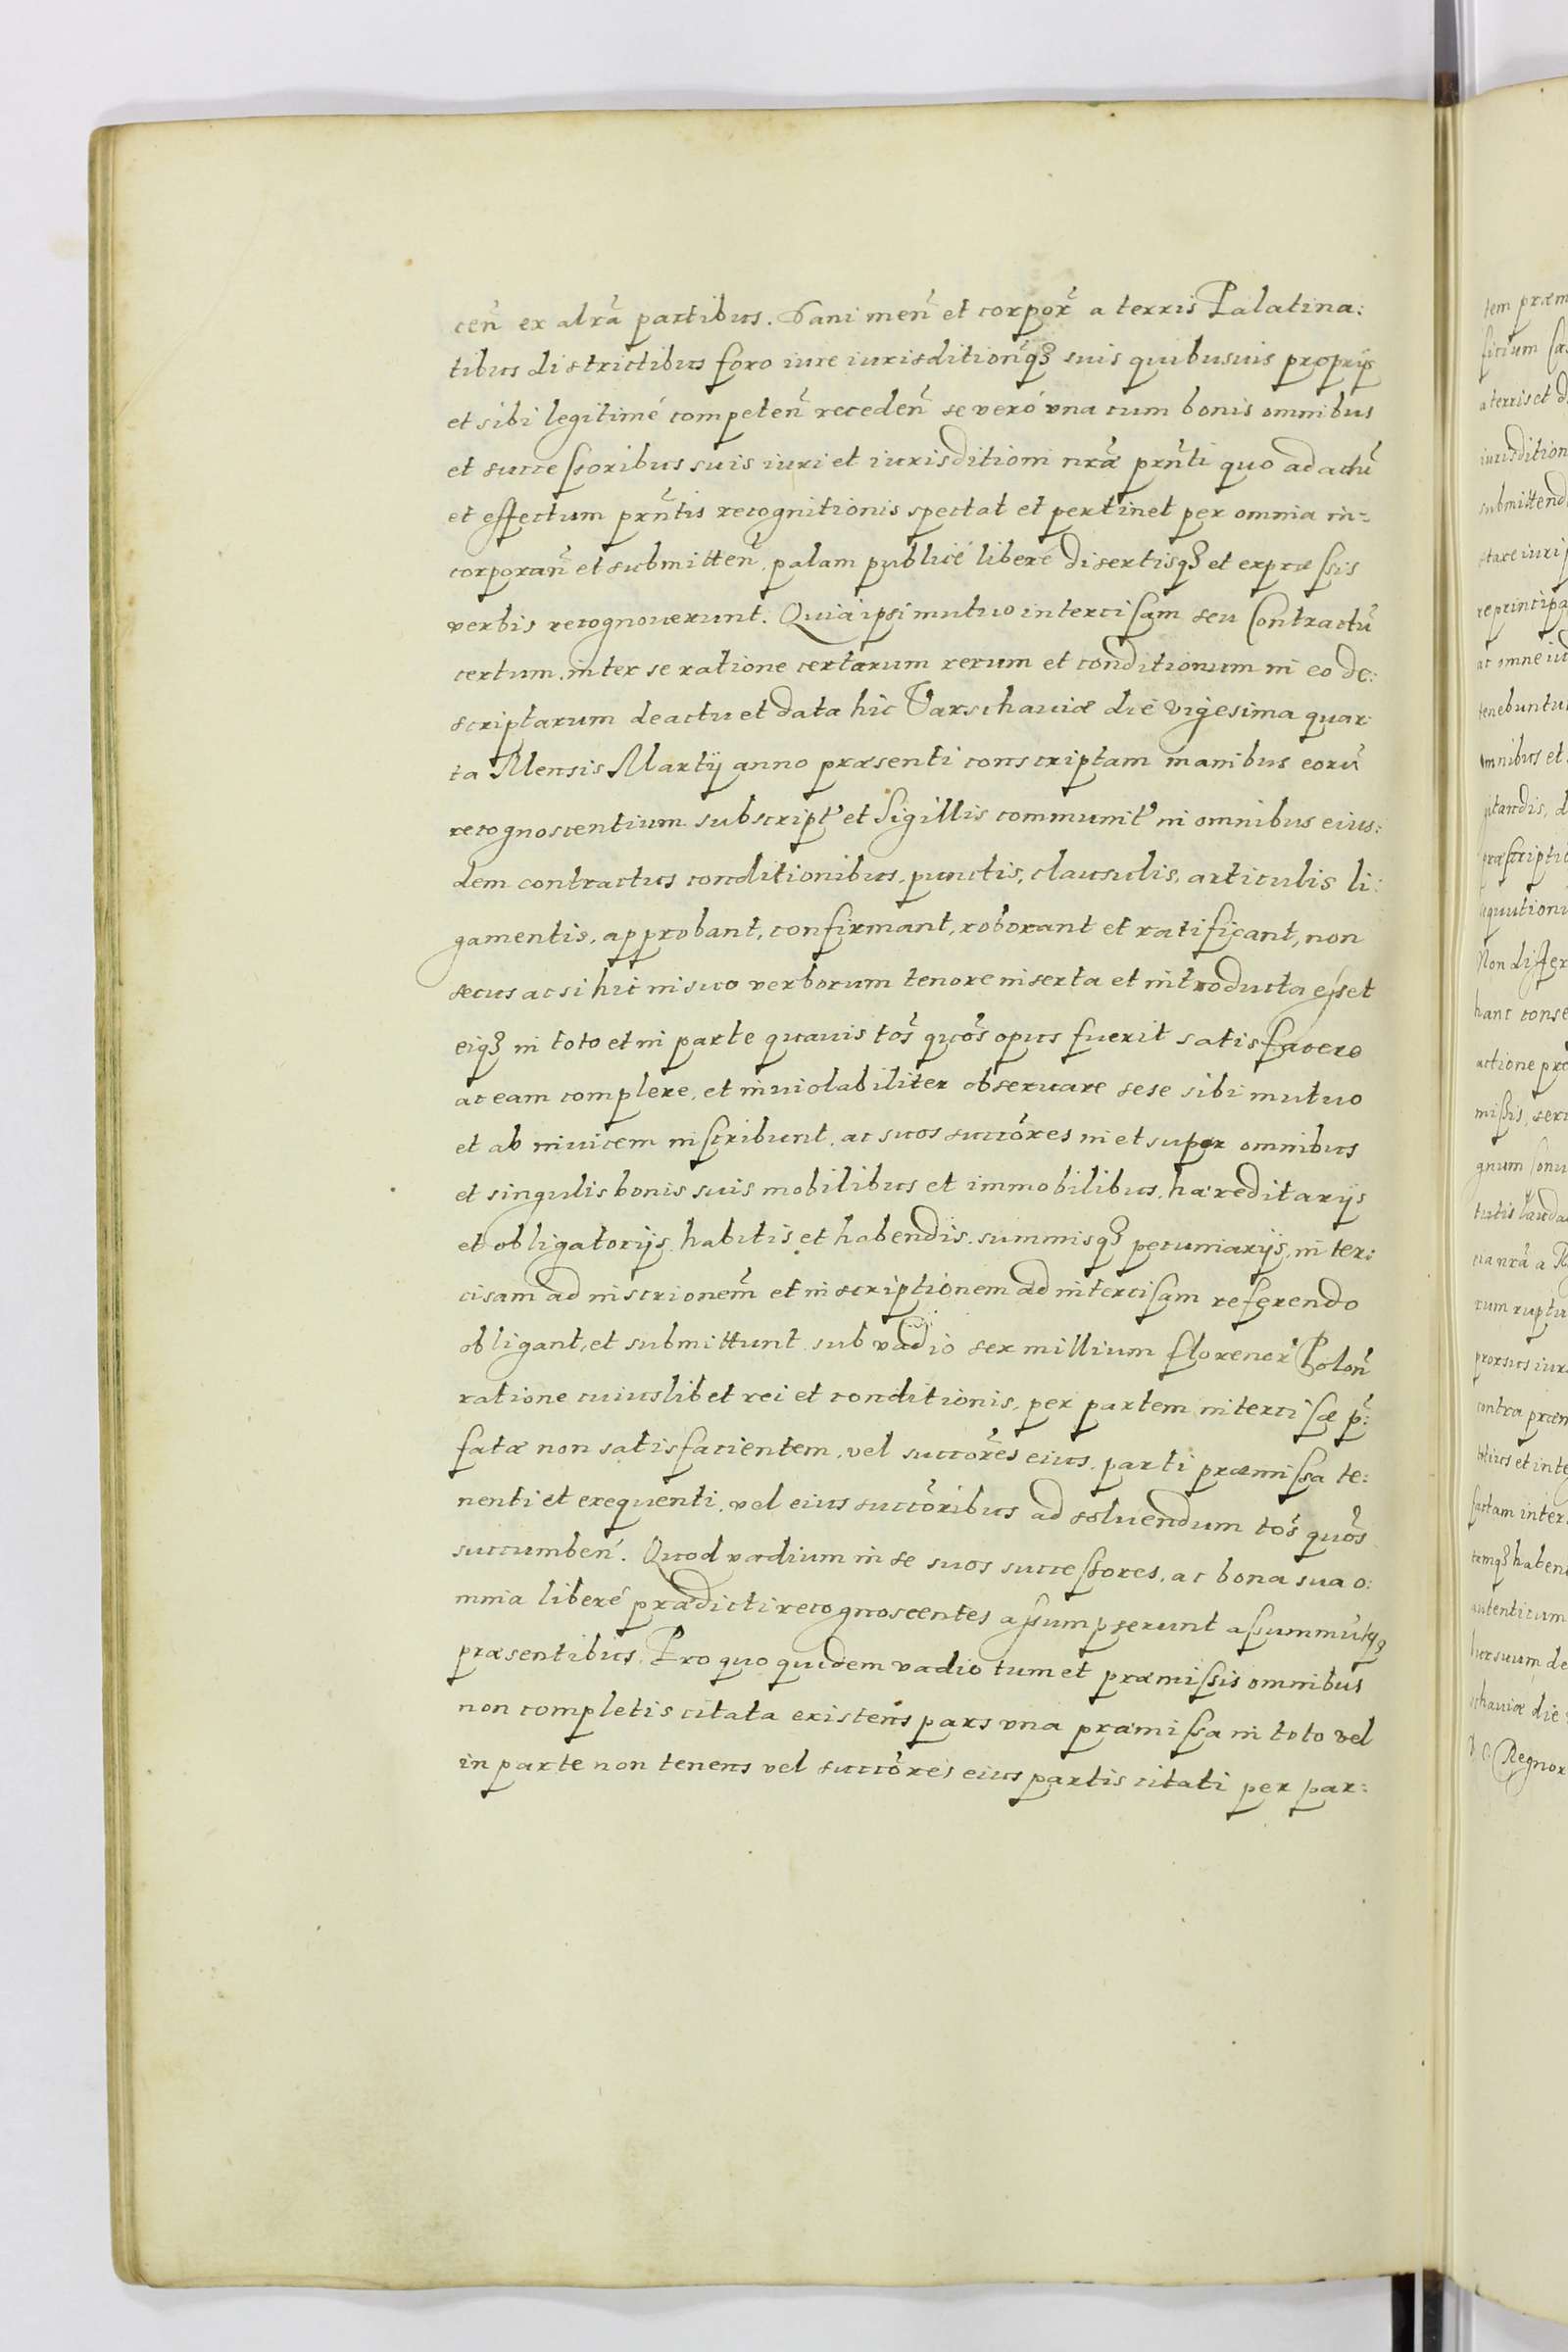 ceñ ex alrã partibus. Sani meñ et corpor̃ a terris Palatina:
tibus districtibus foro iure iurisditioniq₃ suis quibusuis proprijs
et sibi legitimé competeñ recedeñ se veró vna cum bonis omnibus
et successoribus suis iuri et iurisditioni nræ̃ prñti quo ad actũ
et effectum prñtis recognitionis spectat et pertinet per omnia in=
corporañ et submitteñ. palam publicé liberé disertisq₃ et expræssis
verbis recognouerunt. Quia ipsi mutuo intercisam seu Contractũ
certum inter se ratione certarum rerum et conditionum in eo de:
scriptarum de actu et data hic Varschauiæ dié vigesima quar
ta Mensis Martij anno præsenti conscriptam manibus eorũ
recognoscentium subscript̃ et Sigillis communit̃ in omnibus eius:
dem contractus conditionibus, punctis, clausulis, articulis li:
gamentis, approbant, confirmant, roborant et ratificant, non
secus ac si hic in suo verborum tenore inserta et introducta esset
eiq₃ in toto et in parte quauis tos̃ quos̃ opus fuerit satisfacere
ac eam complere, et inuiolabiliter obseruare sese sibi mutuo
et ab inuicem inscribunt, ac suos succõres in et super omnibus
et singulis bonis suis mobilibus et immobilibus, hæreditarijs
et obligatorijs, habitis et habendis, summisq₃ pecuniarijs, inter:
cisam ad inscrionem̃ et inscriptionem ad intercisam referendo
obligant, et submittunt sub vadio sex millium florenor̃ Poloñ
ratione cuiuslibet rei et conditionis, per partem intercisæ p̃:
fatæ non satisfacientem, vel succõres eius, parti præmissa te:
nenti et exequenti, vel eius succõribus ad soluendum tos̃ quos̃
succumbeñ. Quod vadium in se suos successores, ac bona sua o:
mnia liberé prædicti recognoscentes assumpserunt assummũtq₃
præsentibus. Pro quo quidem vadio tum et præmissis omnibus
non completis citata existens pars vna præmissa in toto vel
in parte non tenens vel succõres eius partis citati per par:
tem præm
a terris et d
iurisdition
submittend
stare iuri
re principa
ac omne iu
tenebuntu
omnibus et
Non differ
hanc conse
actione præ
missis, ser
gnum
tutis
cia nrã a
rum ruptu
prorsus iur
contra præm
factam inter
tamq₃ haben
autenticum
schauiæ die
Regnor